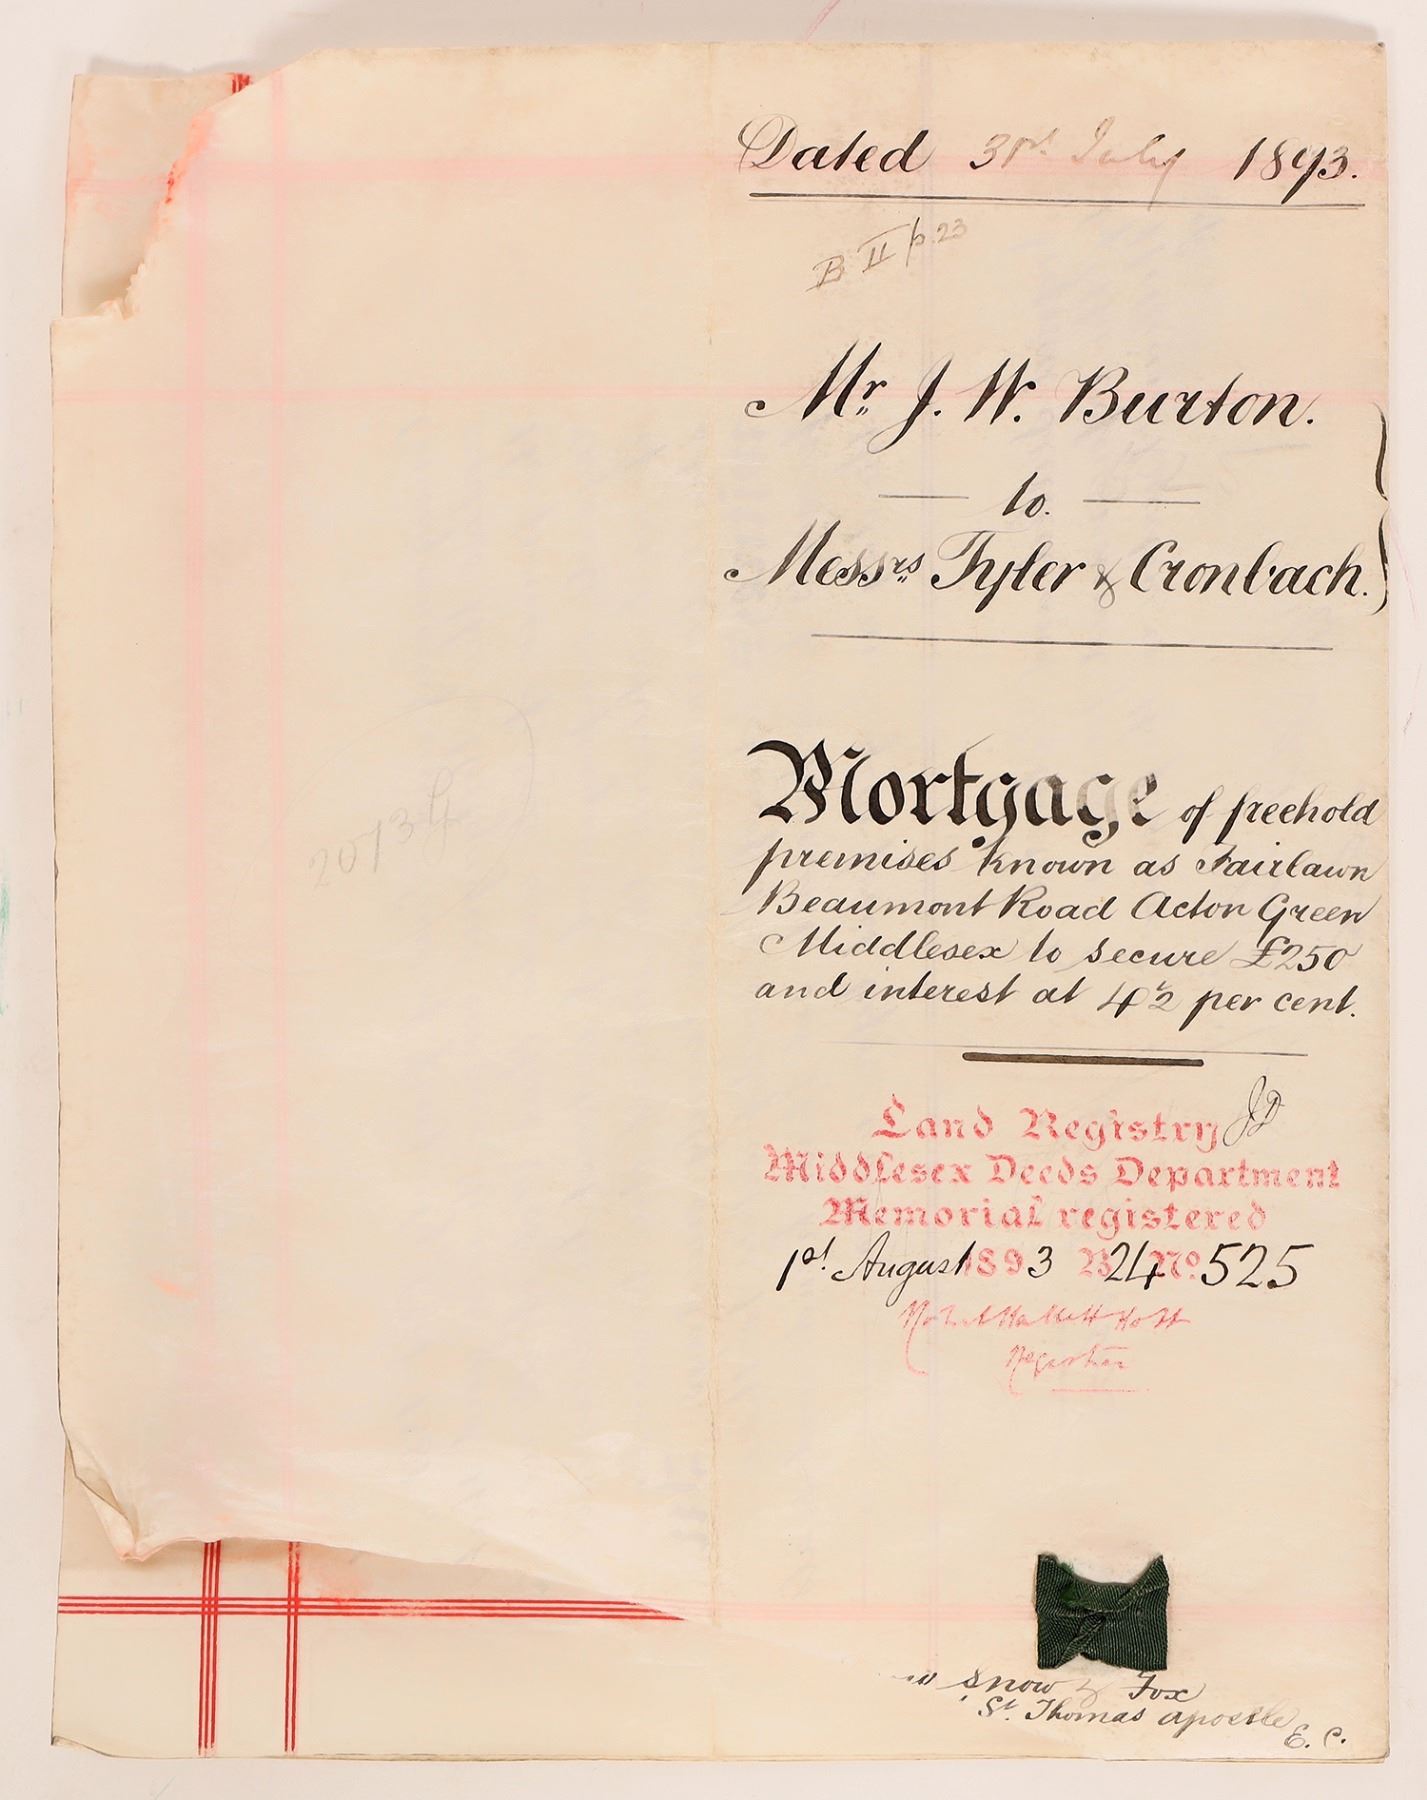 Dated 31st July 1893.
B II p. 23
Mr. J. W. Burton.
to.
Messrs. Tyler & Cronbach.
Mortgage of freehold
premises known as Fairlawn
Beaumont Road Acton Green
Middlesex to secure £250
and interest at 4½ per cent.
Land Registry JD
Middlesex Deeds Department
Memorial registered
1st August 1893 B 24 No. 525
Registrar
Snow & Fox
St. Thomas apostle
E. C.